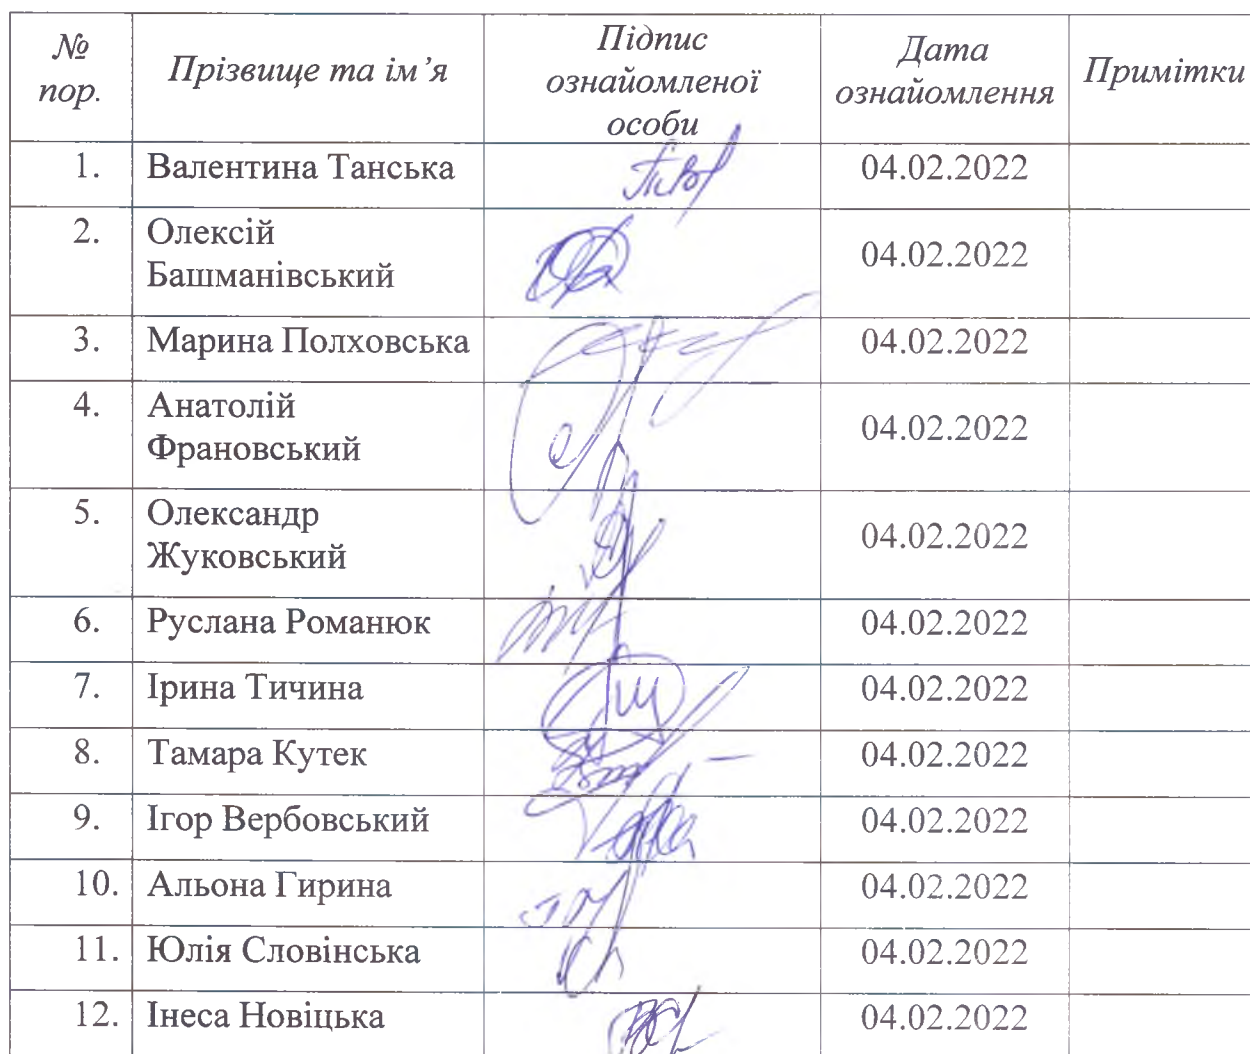 № пор. Прізвище та ім’я Підпис ознайомленої особи Дата ознайомлення Примітки
1. Валентина Танська 04.02.2022
2. Олексій Башманівський 04.02.2022
3. Марина Полховська 04.02.2022
4. Анатолій Франовський 04.02.2022
5. Олександр Жуковський 04.02.2022
6. Руслана Романюк 04.02.2022
7. Ірина Тичина 04.02.2022
8. Тамара Кутек 04.02.2022
9. Ігор Вербовський 04.02.2022
10. Альона Гирина 04.02.2022
11. Юлія Словінська 04.02.2022
12. Інеса Новіцька 04.02.2022